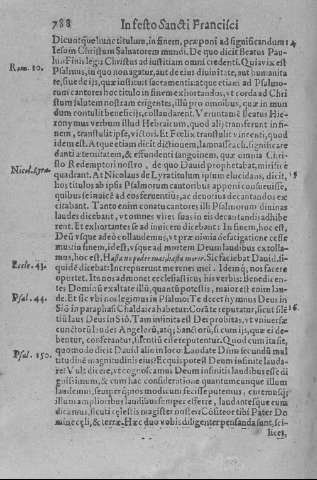 788 In festo Sancti Francisci
Dicuntque hunc titulum, in finem, præponi ad significandum
Iesom Christum Salvatorem mundi. De quo dicit Beatus Pau-
Rom. 10.
lus Finis legis Christus ad iustitiam omni credenti. Quia vix est
Psalmus, in quo non agatur, aut de eius divinitate, aut humanita
te,
cantores hoc titulo in finem exhortandos, vt corda ad Chri
stum salutem nostram erigentes, illū pro omnibus, quæ in mun
dum contulit beneficijs, collaudarent. Veruntamē Beatus Hie
ronymus verbum illud Hebraicum, quod alij transferunt in fi-
nem, transtulit ipse, victori. Et Fœlix transtulit vincenti, quod
idem est. Atque etiam dicit dictionem, significare
& effundenti sanguinem, quæ omnia Chri-
sto Redemptori nostro, de quo David prophetabat, mirificè
Nicol. Lyra.
quadrant. At Nicolaus de Lyra titulum ipsum elucidans, dicit,
hos titulos ab ipsis Psalmorum cantoribus apponi consuevisse,
quibus se invicē ad cosferventius, ac devotius decantandos ex
citabant. Tanto enim conatu cantores illi Psalmorum divinas
laudes dicebant, vt omnes vires suas in eis decantandis adhibe
rent. Et exhortantes se ad invicem dicebant: In finem, hoc est,
Deū vsque adeò collaudemus, vt præ nimia defatigatione
finem, id est, vsque ad mortem Deum laudibus extolla-
mus, hoc est, Hasta no poder mas, hasta morir. Sic faciebat David, si-
Eccle. 43.
quidē dicebat: Increpuerunt me renes mei. Idemque, nos facere
oportet. Ita nos admonet ecclesiasticus his verbis: Benedicen-
tes Dominū exaltate illū, quantū potestis, maior est enim lau-
Psal. 44.
de. Et sic vbi nos legimus in Psalmo: Te decet hymnus Deus in
Siō in paraphasi Chaldaica habetur: Corā te reputatur, sicut silē
tiū laus Deus in Siō. Tam invicta est Dei probitas, vt vniversæ
cunctorū laudes Angelorū, atque sanctorū, si cum ijs, quæ ei de-
bentur, conferantur, silentiū esse reputentur. Quod cum ita sit,
Psal. 150.
quomodo dicit David alio in loco: Laudate Deum secundū mul
titudinē magnitudinis eius? Ecquis potest Deum infinite lauda-
re? Vult dicere, vt cognoscamus Deum infinitis laudibus esse di
gnissimum, & cum hac consideratione quantumcunque illum
laudemus, semperque nos modicum fecisse putemus,
illum amplioribus laudibus semper efferre, laudantesque eum
dicamus, sicuti cælestis magister noster: Cōfiteor tibi Pater Do
mine cæli, & terræ. Hæc duo vobis diligenter pensanda sunt, sci-
licet,